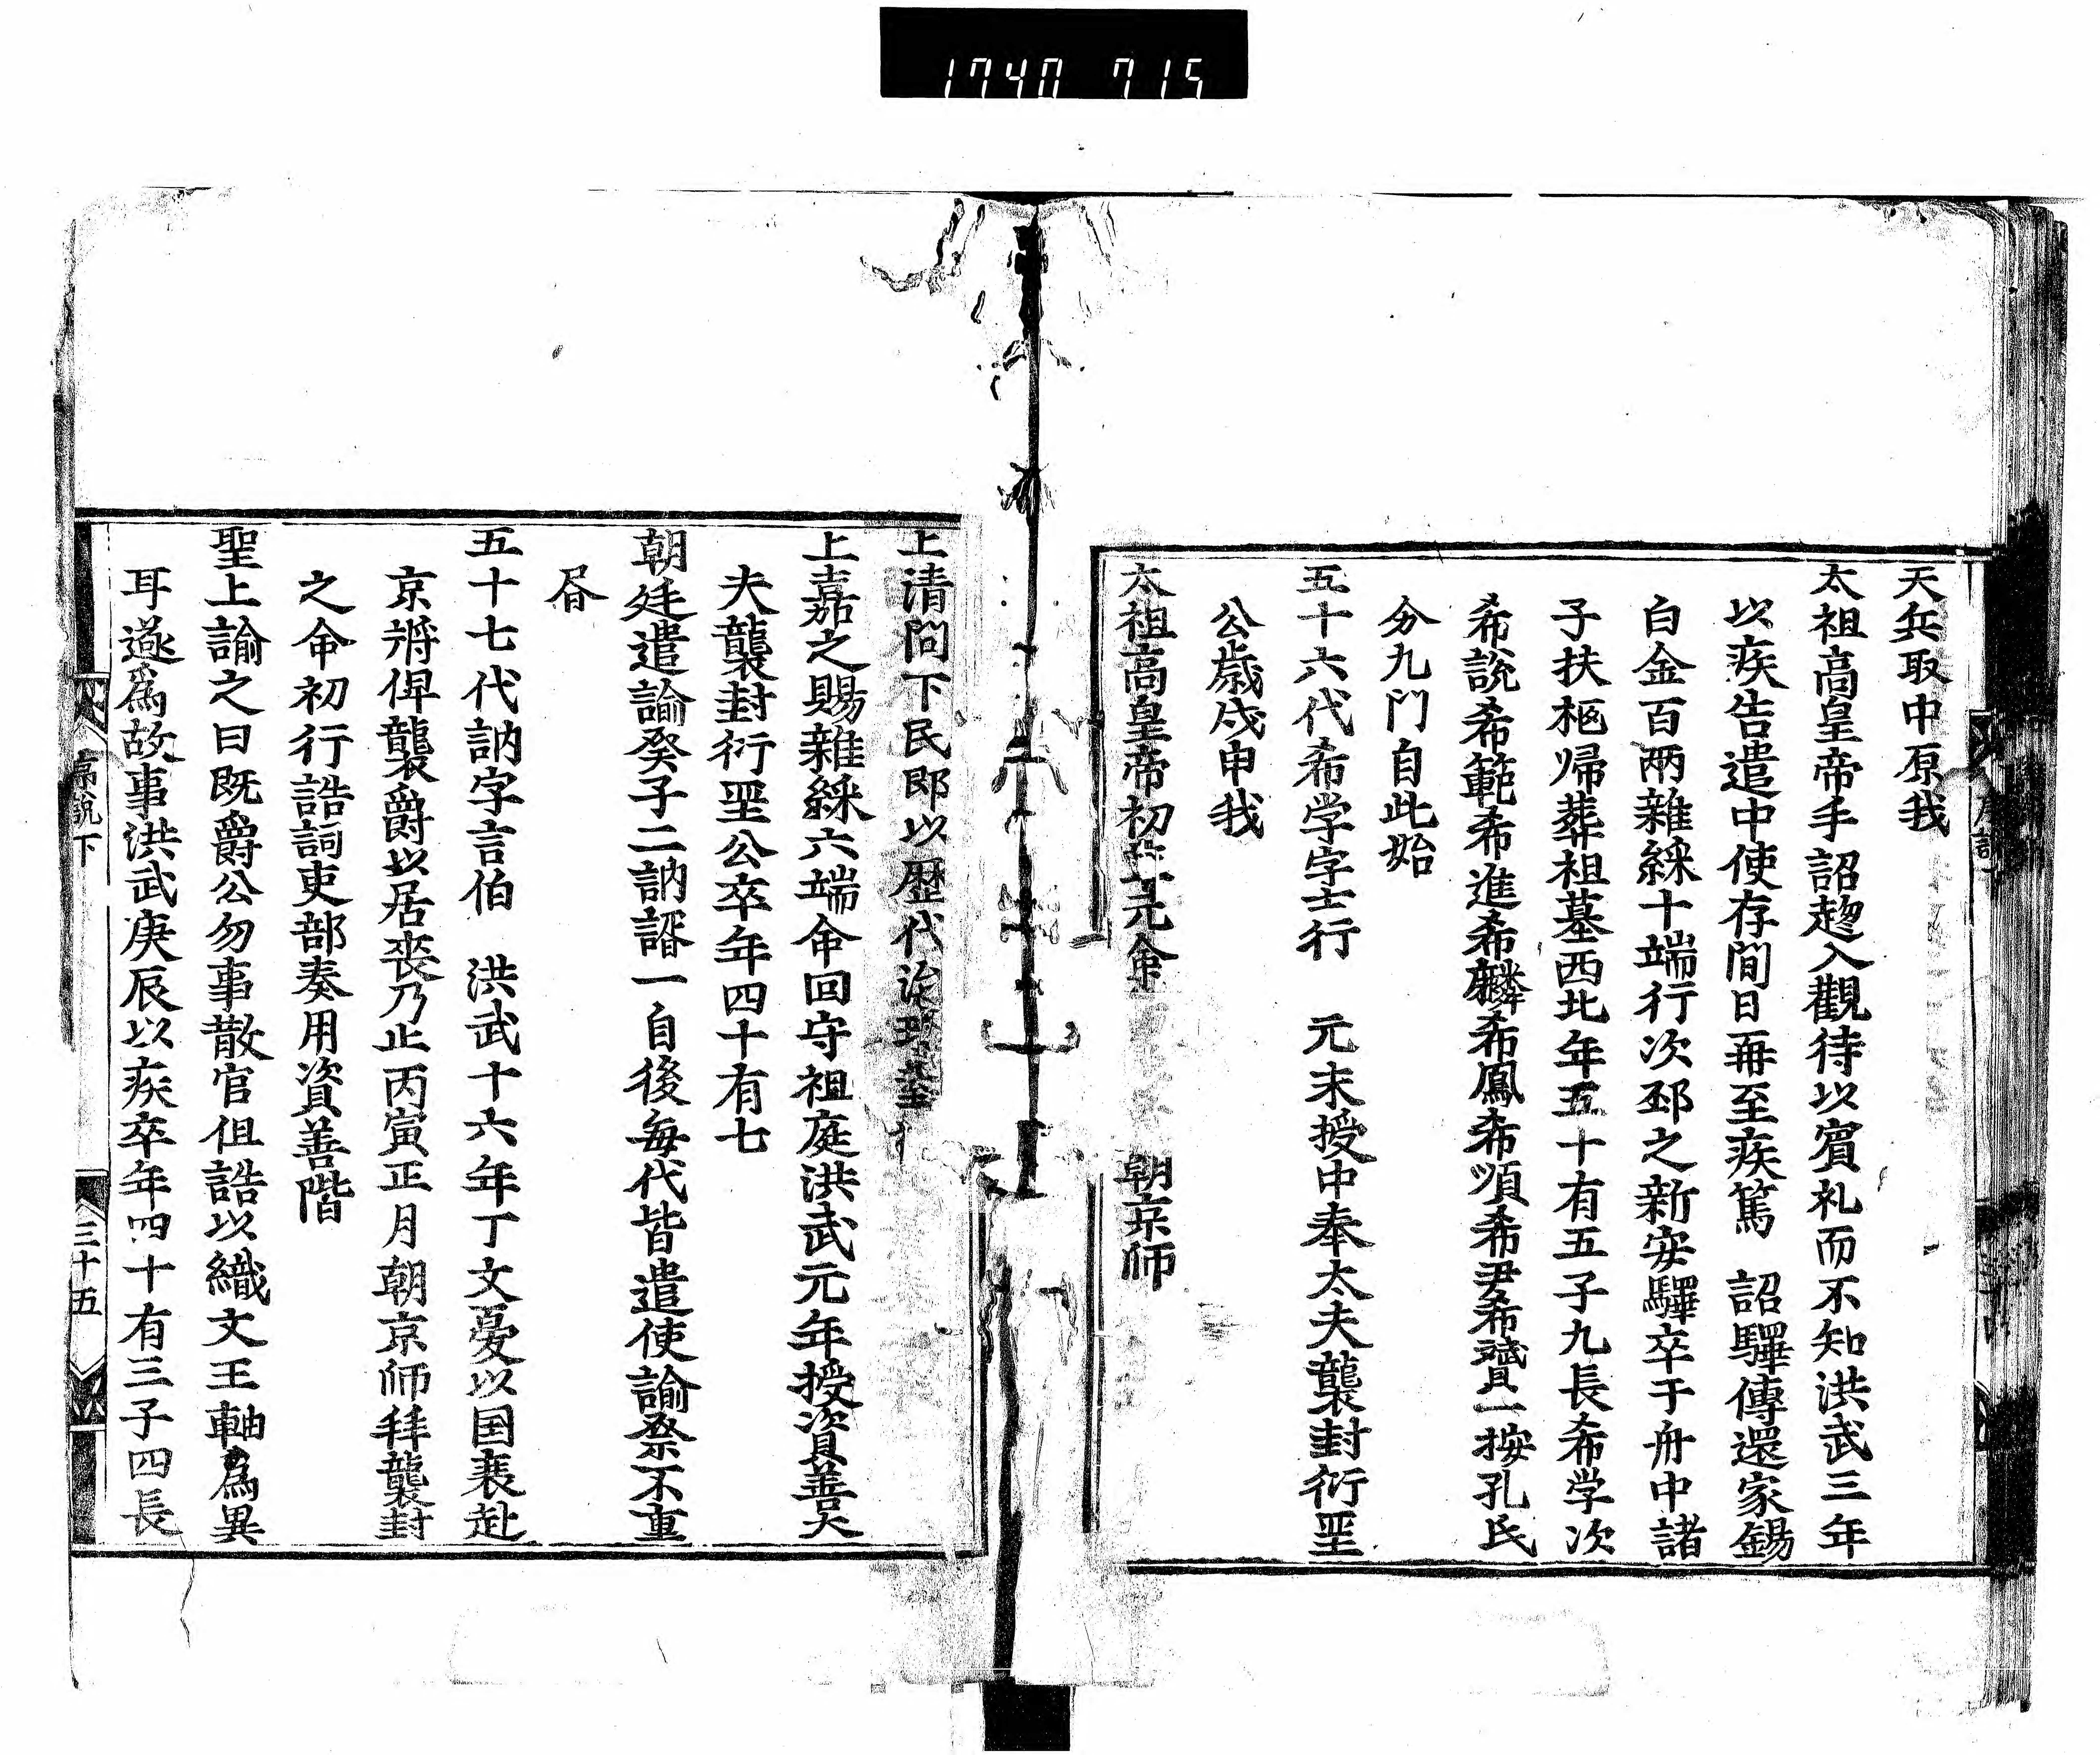 1740 715
天兵取中原我
太祖高皇帝手詔趣入觀待以賓礼而不知洪武三年
以疾告遣中使存問日再至疾篤 詔驛傳還家錫
白金百兩雜綵十端行次邳之新安驛卒于舟中諸
子扶柩歸葬祖墓西北年五十有五子九長希学次
希說希範希進希麟希鳳希順希尹希贇一按孔氏
分九門自此始
五十六代希学字士行 元末授中奉太夫襲封衍聖
公歲戊申我
太祖高皇帝初 元命 朝京師
上清問下民郎以歷代
上嘉之賜雜綵六端命回守祖庭洪武元年授資善大
夫襲封衍聖公卒年四十有七
朝廷遣諭癸子二訥諝一自後每代皆遣使諭祭不重
㫺
五十七代訥字言伯 洪武十六年丁文憂以国喪赴
京將俾襲爵以居喪乃止丙寅正月朝京師拜襲封
之命初行誥詞吏部奏用資善階
聖上諭之曰既爵公勿事散官但誥以織文王軸為異
耳遂為故事洪武庚辰以疾卒年四十有三子四長
下
三十五